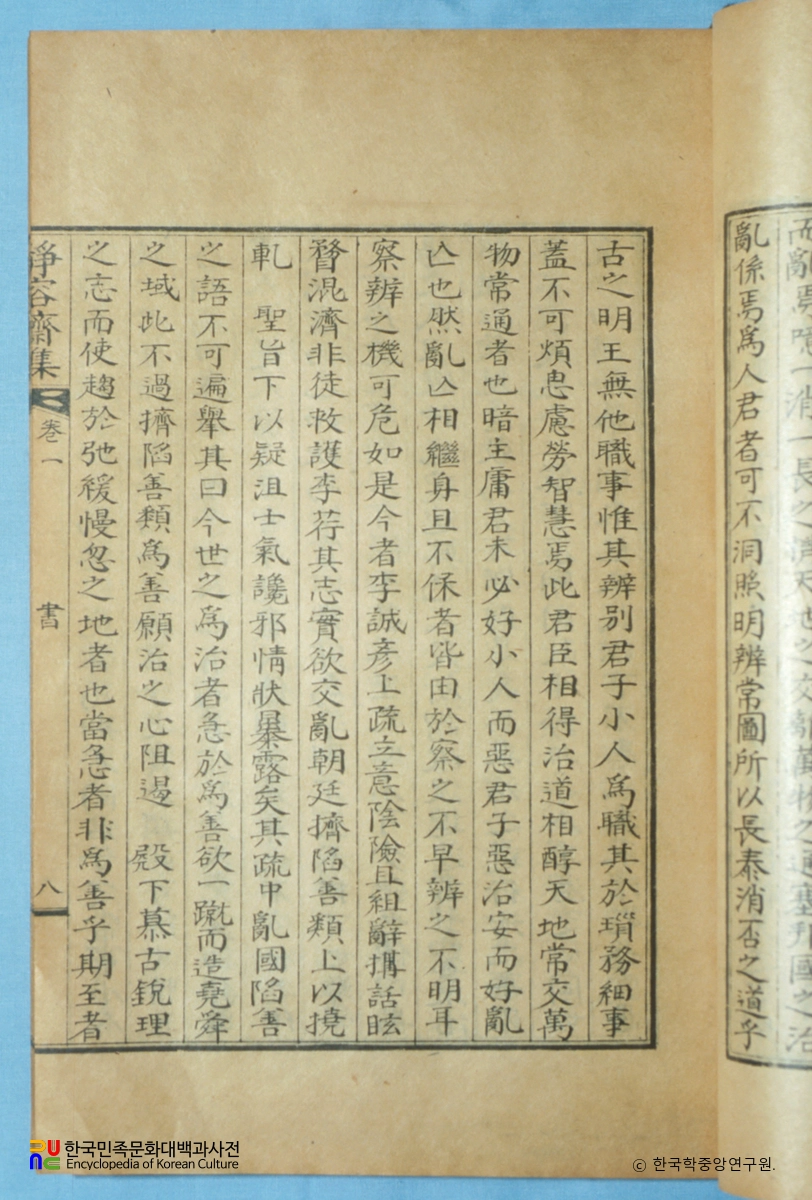 亂係焉爲人君者可不洞照明辨常圖所以長泰消否之道乎
古之明王無他職事惟其辨別君子小人爲職其於瑣務細事
蓋不可煩思慮勞智慧焉此君臣相得治道相醇天地常交萬
物常通者也暗主庸君未必好小人而惡君子惡治安而好亂
亾也然亂亾相繼身且不保者皆由於察之不早辨之不明耳
察辨之機可危如是今者李誠彥上疏立意陰險且組辭搆話眩
瞀混濟非徒救護李荇其志實欲交亂朝廷擠陷善類上以撓
軋　聖旨下以疑沮士氣讒邪情狀暴露矣其疏中亂國陷善
之語不可遍舉其曰今世之爲治者急於爲善欲一蹴而造堯舜
之域此不過擠陷善類爲善願治之心阻遏　殿下慕古銳理
之志而使趨於弛緩慢忽之地者也當急者非爲善乎期至者
容齋集 卷一 書 八
한국민족문화대백과사전
Encyclopedia of Korean Culture
ⓒ 한국학중앙연구원.